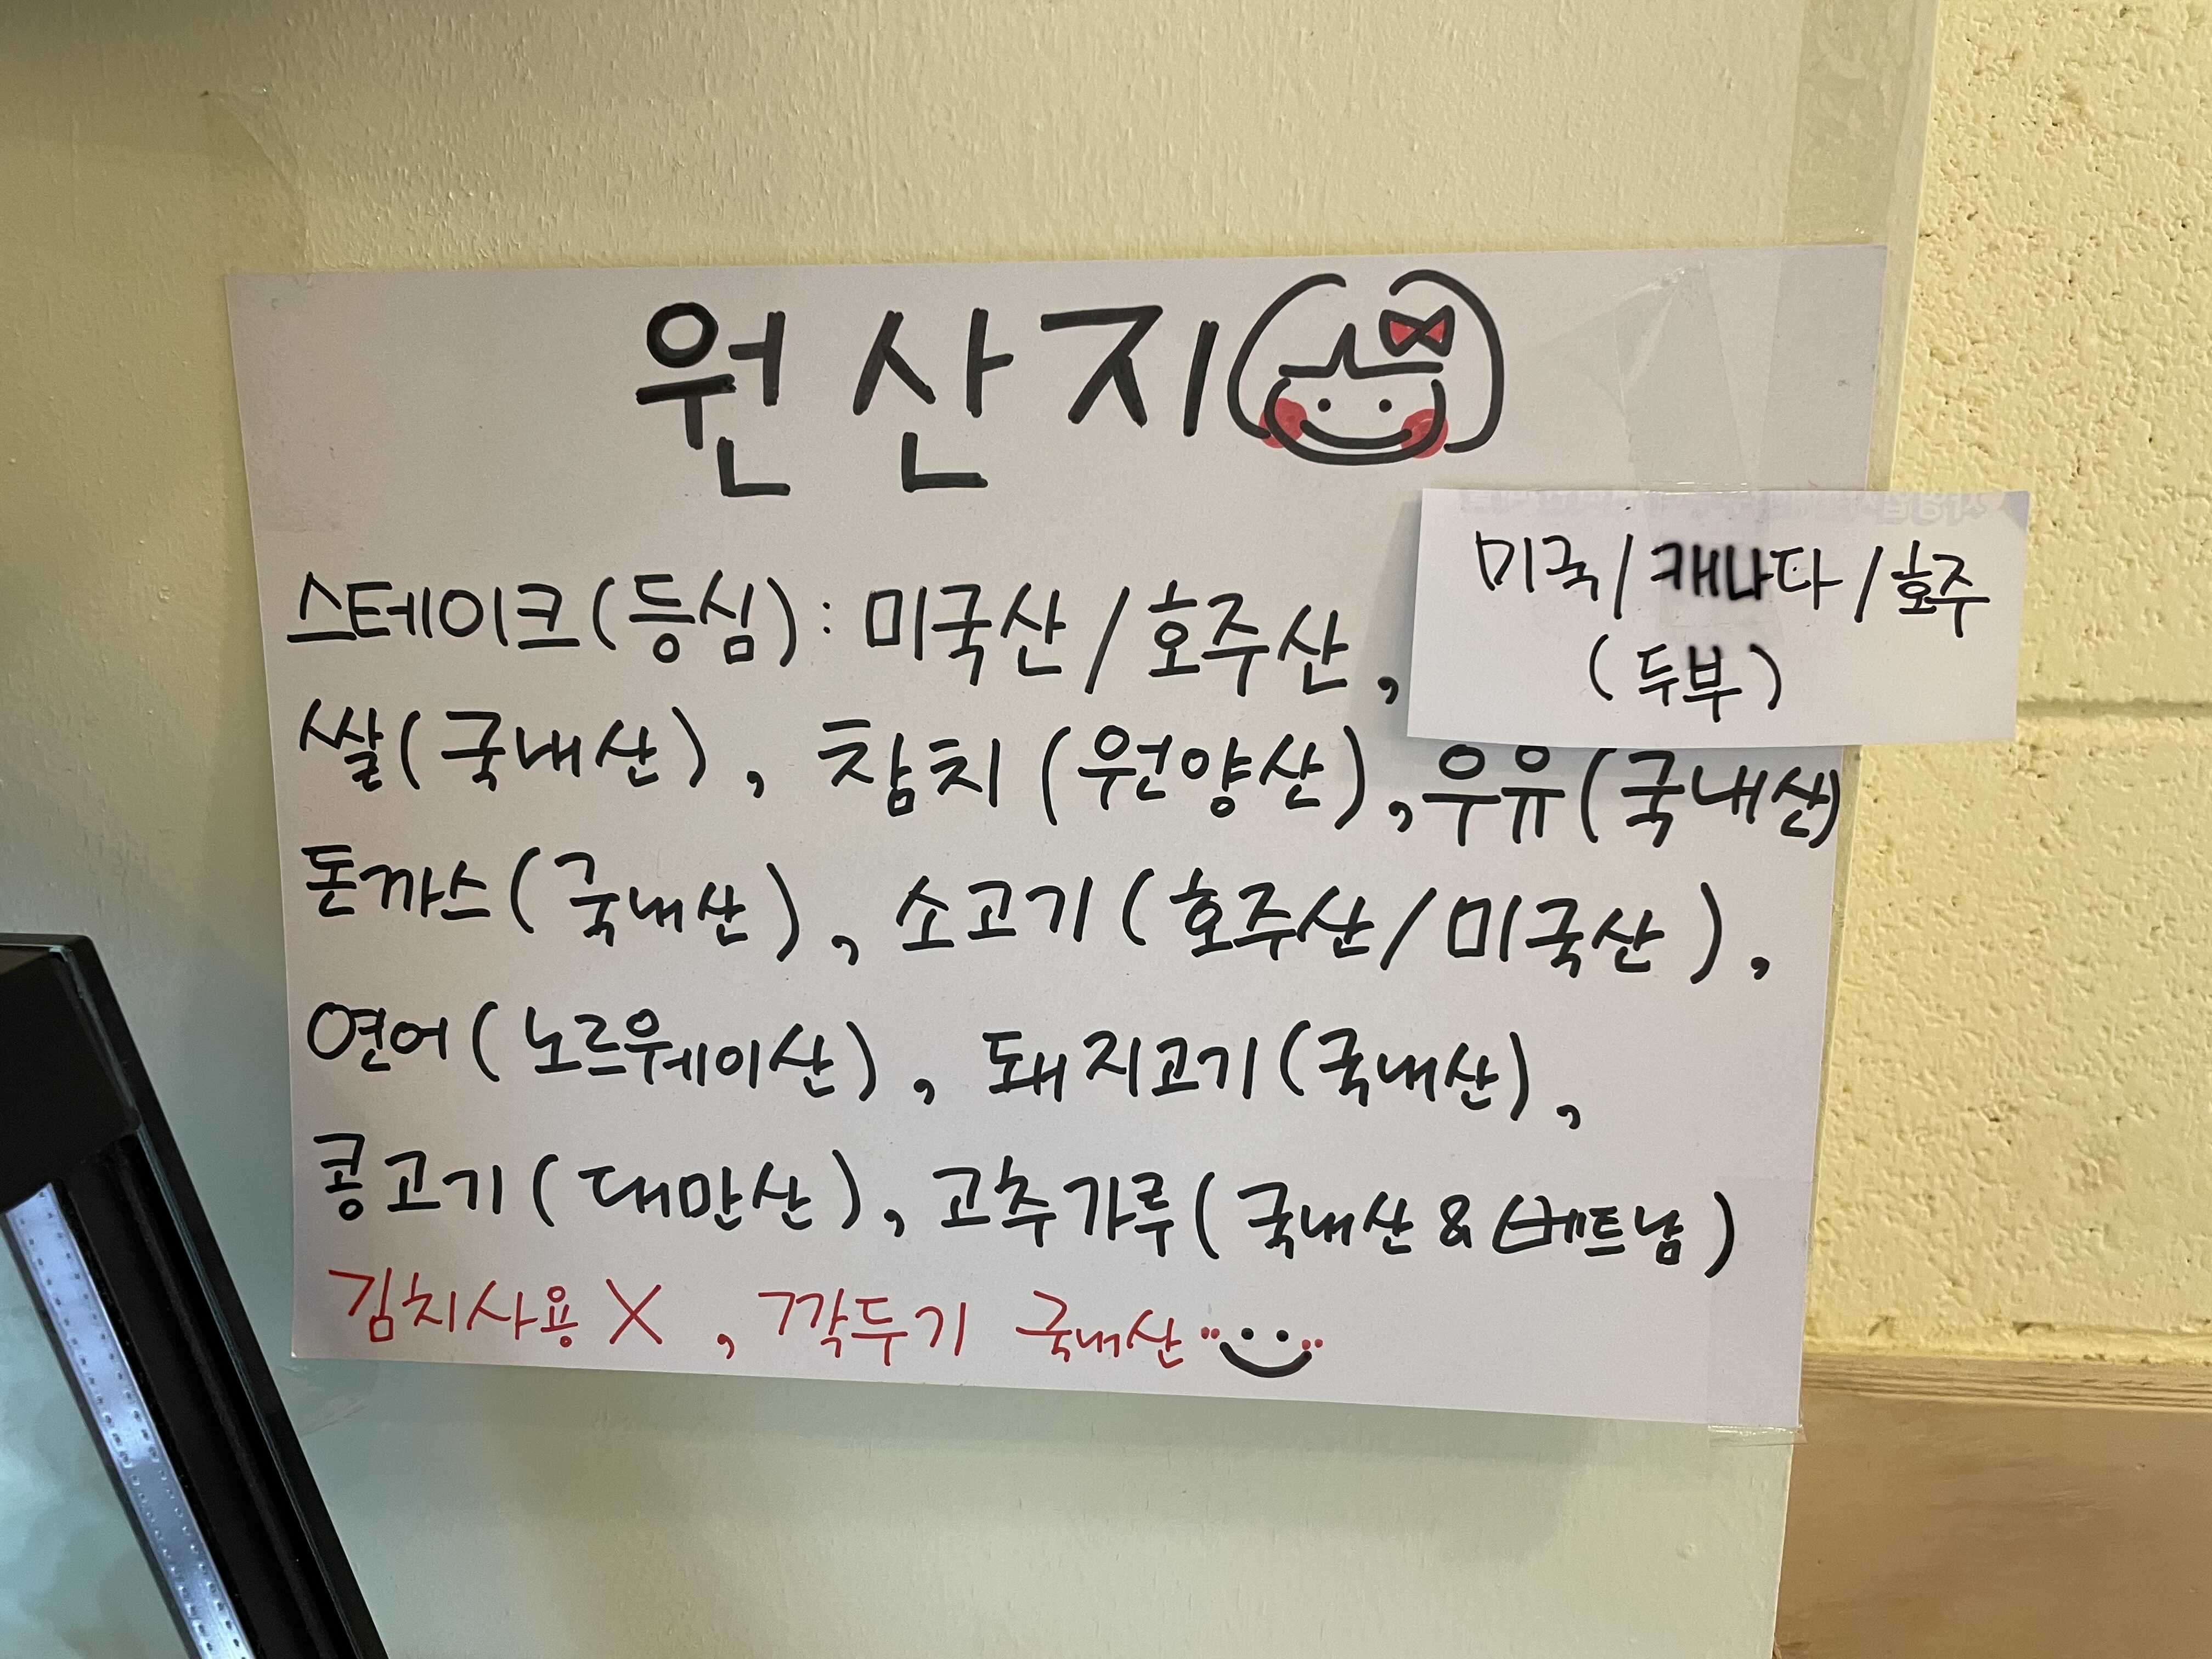 원산지
스테이크(등심) : 미국산 / 호주산,
미국 / 캐나다 / 호주
(두부)
쌀(국내산), 참치(원양산), 우유(국내산)
돈까스(국내산), 소고기(호주산/미국산),
연어(노르웨이산), 돼지고기(국내산),
콩고기(대만산), 고추가루(국내산 & 베트남)
김치사용 X, 깍두기 국내산